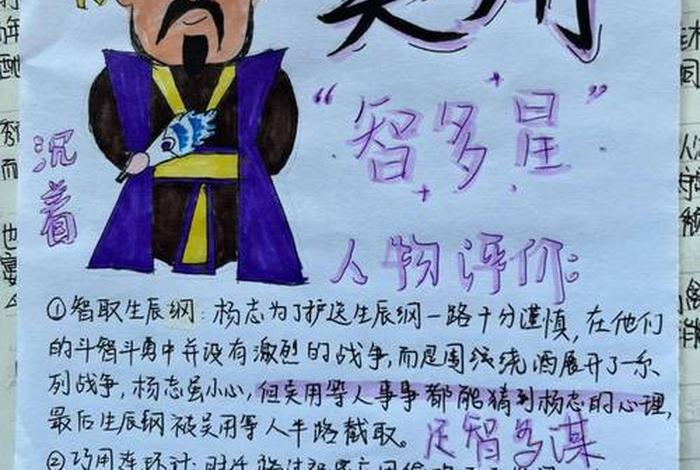 吴用
“智多星”
沉着
人物评价:
①智取生辰纲:杨志为了护送生辰纲一路十分谨慎,在他们
的斗智斗勇中并没有激烈的战争,而是围绕绕酒展开了一系
列战争,杨志虽小心,但吴用等人事事都能猜到杨志的心理,
最后生辰纲被吴用等人半路截取。
足智多谋
②巧用连环计:时迁